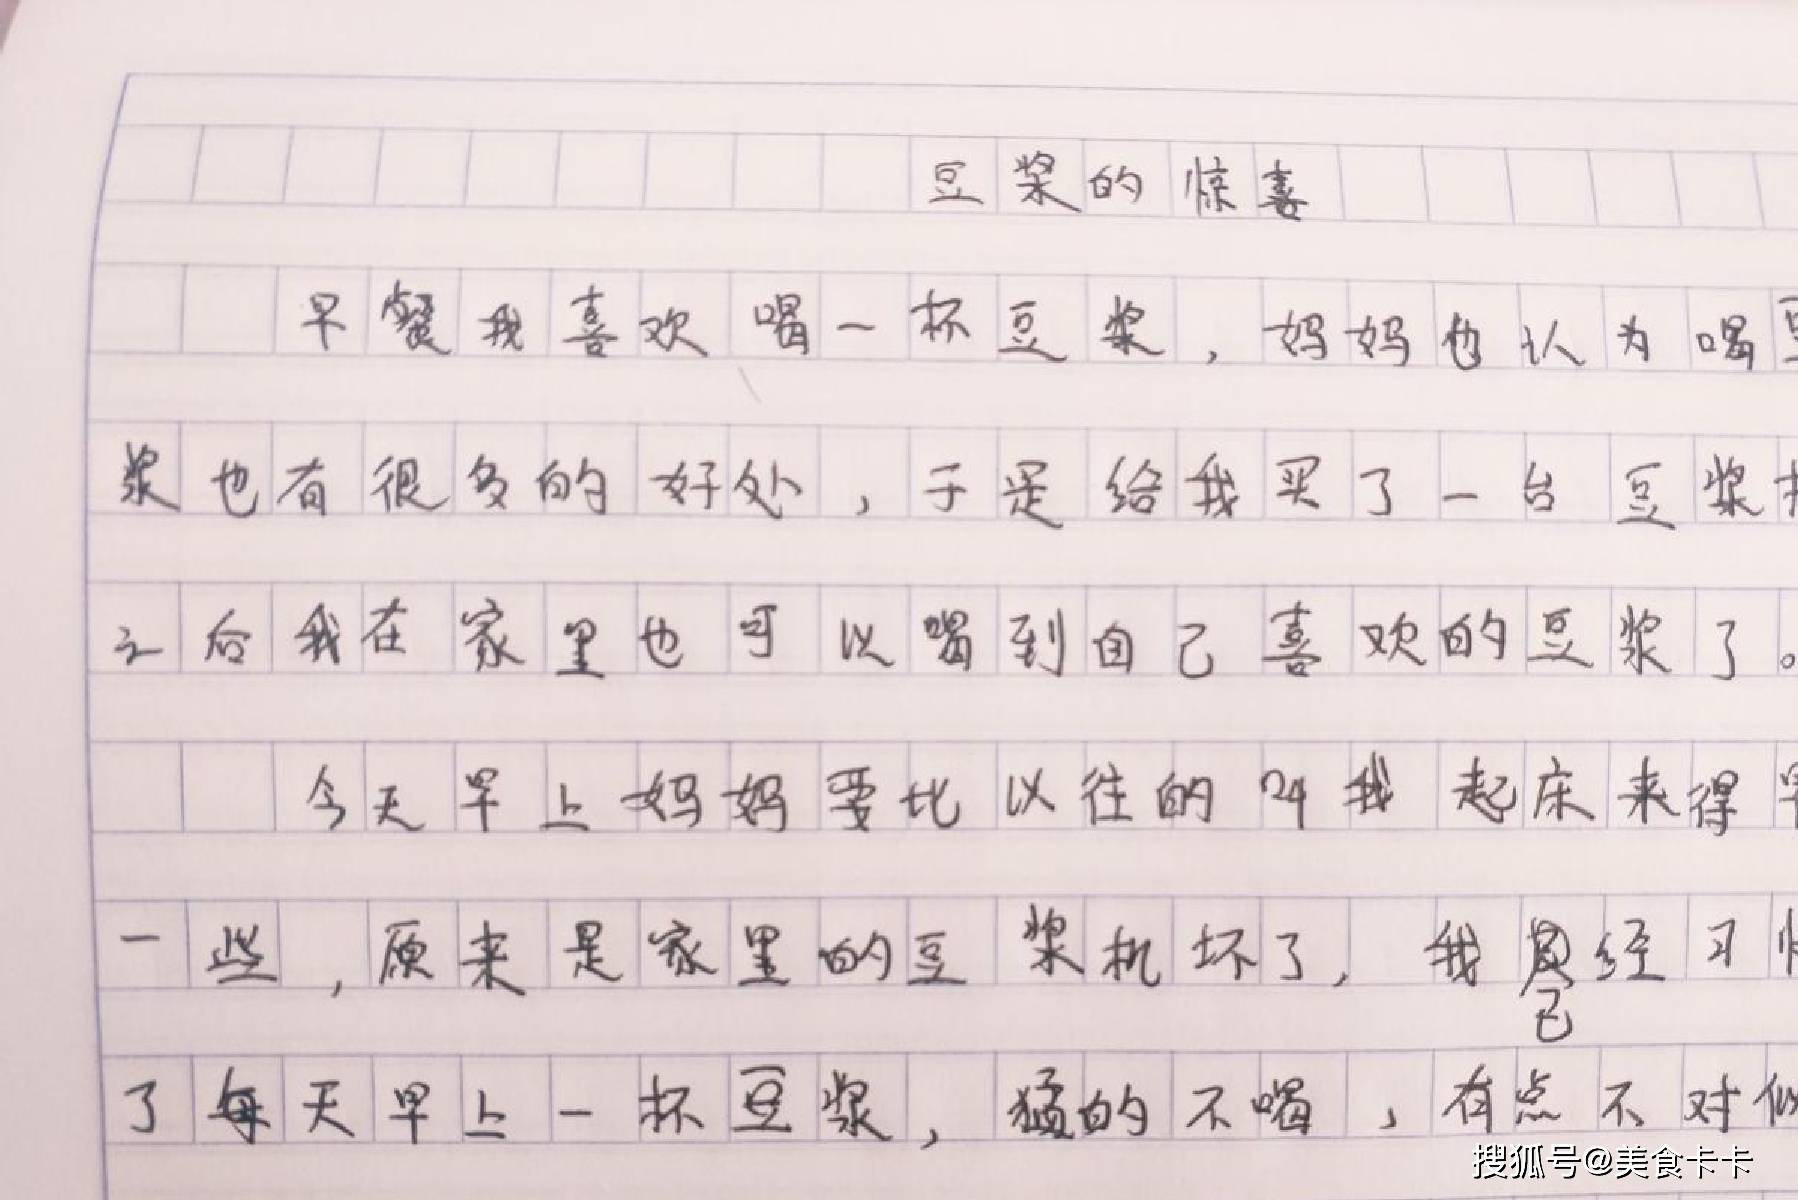 豆浆的惊喜
早餐我喜欢喝一杯豆浆，妈妈也认为喝豆
浆也有很多的好处，于是给我买了一台豆浆
之后我在家里也可以喝到自己喜欢的豆浆了。
今天早上妈妈要比以往的叫我起床来得早
一些，原来是家里的豆浆机坏了，我已经习
了每天早上一杯豆浆，猛的不喝，有点不对似
搜狐号@美食卡卡